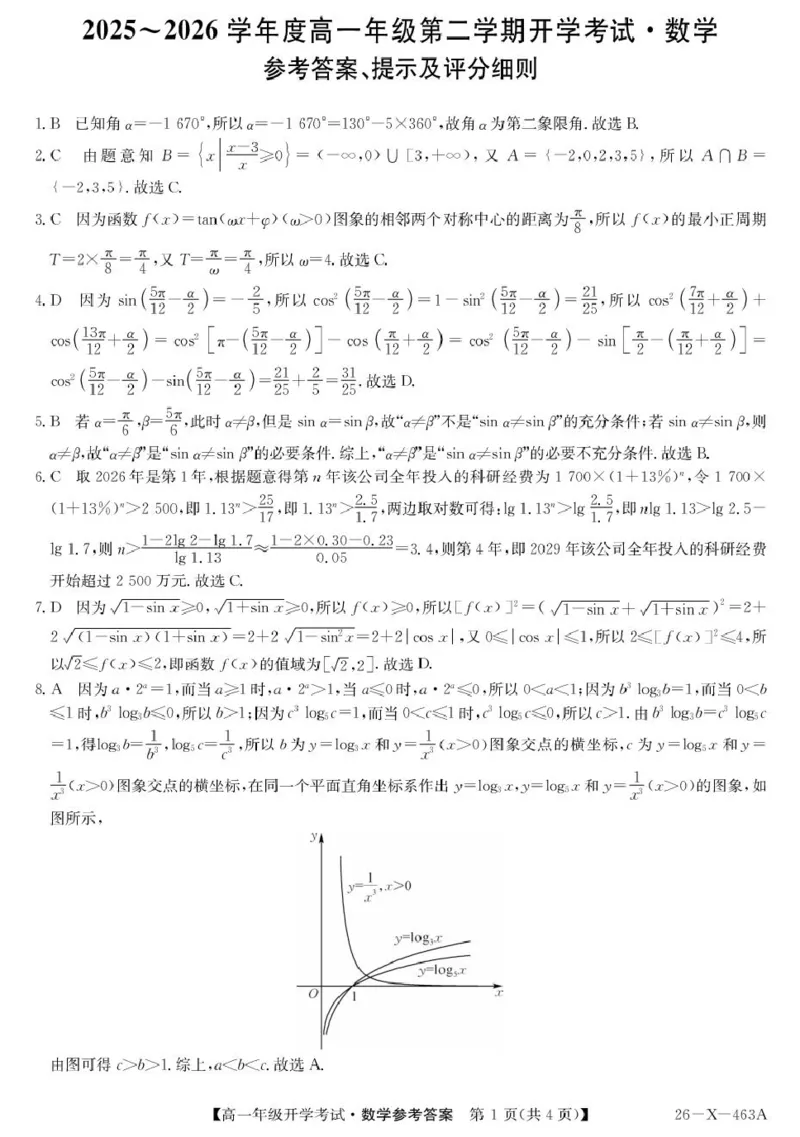 2025～2026 学年度高一年级第二学期开学考试·数学
参考答案、提示及评分细则
1. B 已知角 α=-1 670°,所以 α=-1 670°=130°-5×360°,故角 α 为第二象限角.故选 B.
2. C 由题意知 B={x|(x-3)/x≥0}=(-∞,0)∪[3,+∞),又 A={-2,0,2,3,5},所以 A∩B=
{-2,3,5}.故选 C.
3. C 因为函数 f(x)=tan(ωx+φ)(ω>0)图象的相邻两个对称中心的距离为π/8,所以 f(x)的最小正周期
T=2×π/8=π/4,又 T=π/ω=π/4,所以 ω=4.故选 C.
4. D 因为 sin(5π/12-α/2)=-2/5,所以 cos²(5π/12-α/2)=1-sin²(5π/12-α/2)=21/25,所以 cos²(7π/12+α/2)+
cos(13π/12+α/2)=cos²[π-(5π/12-α/2)]-cos(π/12+α/2)=cos²(5π/12-α/2)-sin[π/2-(π/12+α/2)]=
cos²(5π/12-α/2)-sin(5π/12-α/2)=21/25+2/5=31/25.故选 D.
5. B 若 α=π/6,β=5π/6,此时 α≠β,但是 sin α=sin β,故“α≠β”不是“sin α≠sin β”的充分条件;若 sin α≠sin β,则
α≠β,故“α≠β”是“sin α≠sin β”的必要条件.综上,“α≠β”是“sin α≠sin β”的必要不充分条件.故选 B.
6. C 取 2026 年是第 1 年,根据题意得第 n 年该公司全年投入的科研经费为 1 700×(1+13%)ⁿ,令 1 700×
(1+13%)ⁿ>2 500,即 1.13ⁿ>25/17,即 1.13ⁿ>2.5/1.7,两边取对数可得:lg 1.13ⁿ>lg 2.5/1.7,即 nlg 1.13>lg 2.5-
lg 1.7,则 n>(1-2lg 2-lg 1.7)/lg 1.13≈(1-2×0.30-0.23)/0.05=3.4,则第 4 年,即 2029 年该公司全年投入的科研经费
开始超过 2 500 万元.故选 C.
7. D 因为√(1-sin x)≥0,√(1+sin x)≥0,所以 f(x)≥0,所以[f(x)]²=(√(1-sin x)+√(1+sin x))²=2+
2√((1-sin x)(1+sin x))=2+2√(1-sin²x)=2+2|cos x|,又 0≤|cos x|≤1,所以 2≤[f(x)]²≤4,所
以√2≤f(x)≤2,即函数 f(x)的值域为[√2,2].故选 D.
8. A 因为 a·2ᵃ=1,而当 a≥1 时,a·2ᵃ>1,当 a≤0 时,a·2ᵃ≤0,所以 0<a<1;因为 b³ log₃b=1,而当 0<b
≤1 时,b³ log₃b≤0,所以 b>1;因为 c³ log₅c=1,而当 0<c≤1 时,c³ log₅c≤0,所以 c>1.由 b³ log₃b=c³ log₅c
=1,得log₃b=1/b³,log₅c=1/c³,所以 b 为 y=log₃x 和 y=1/x³(x>0)图象交点的横坐标,c 为 y=log₅x 和 y=
1/x³(x>0)图象交点的横坐标,在同一个平面直角坐标系作出 y=log₃x,y=log₅x 和 y=1/x³(x>0)的图象,如
图所示,
y
y=1/x³,x>0
y=log₃x
y=log₅x
O 1 x
由图可得 c>b>1.综上,a<b<c.故选 A.
【高一年级开学考试·数学参考答案 第 1 页(共 4 页)】 26-X-463A